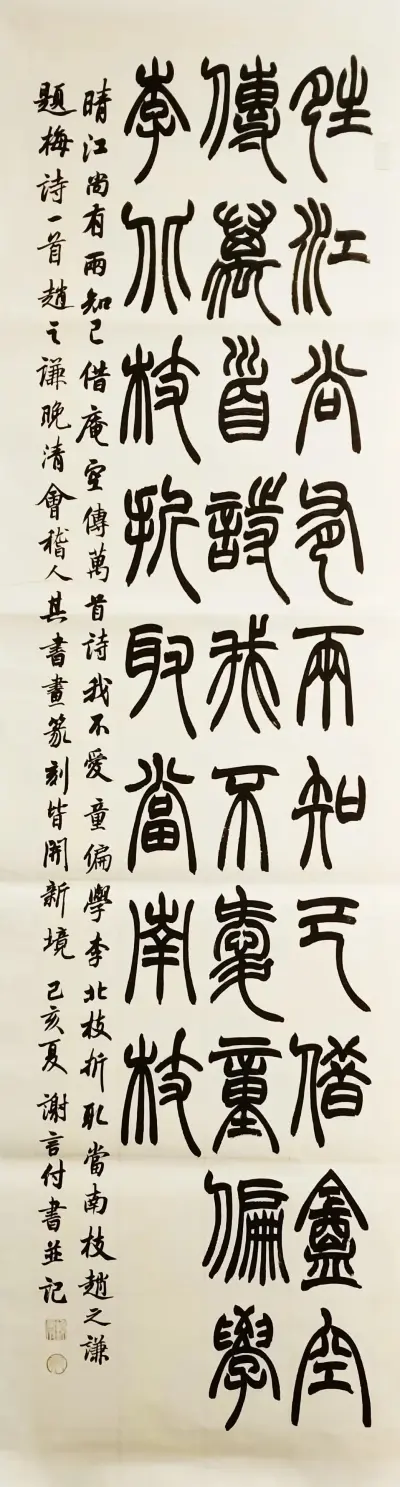 晴江尚有兩知己借盦空
傳萬首詩我不愛童偏學
李北枝折取當南枝
晴江尚有兩知己借庵空傳萬首詩我不愛童偏學李北枝折取當南枝趙之謙
題梅詩一首趙之謙晚清會稽人其書畫篆刻皆開新境 己亥夏謝言付書並記